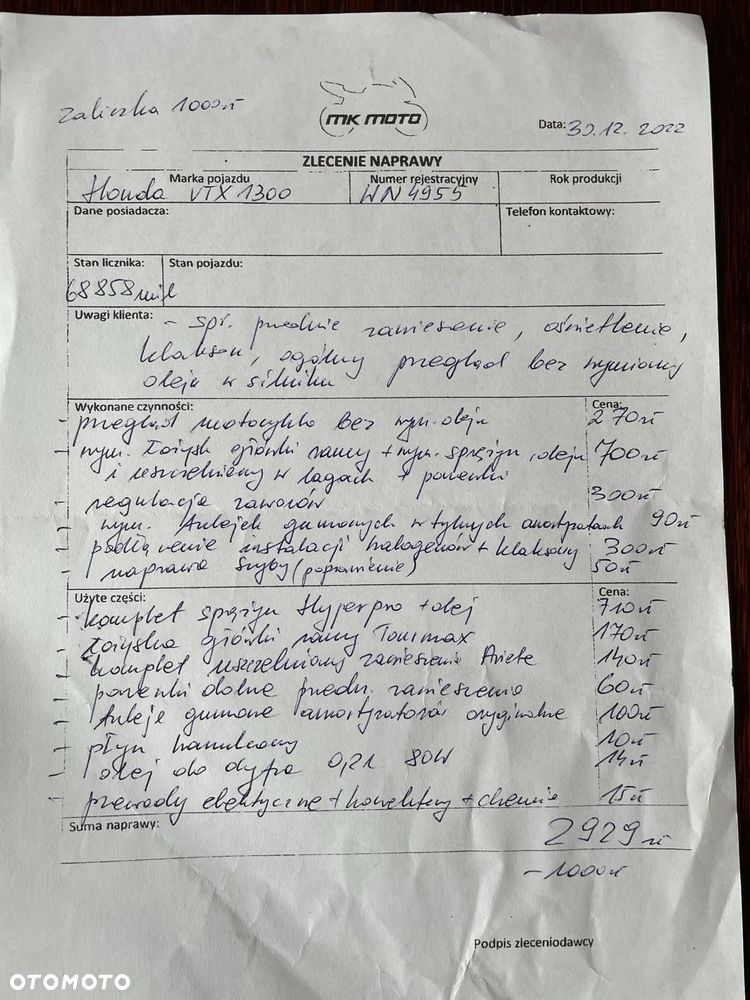 zaliczka 1000zł
MK MOTO
Data: 30.12.2022
ZLECENIE NAPRAWY
Marka pojazdu Numer rejestracyjny Rok produkcji
Honda VTX 1300 WN 4955
Dane posiadacza: Telefon kontaktowy:
Stan licznika: Stan pojazdu:
68858 mil
Uwagi klienta:
- spr. przednie zawieszenie, oświetlenie,
klakson, ogólny przegląd bez wymiany
oleju w silniku
Wykonane czynności: Cena:
- przegląd motocykla bez wym. oleju 270zł
- wym. łożysk główki ramy + wym. sprężyn, oleju 700zł
i uszczelniaczy w lagach + panewki
- regulacja zaworów 300zł
- wym. tulejek gumowych w tylnych amortyzatorach 90zł
- podłączenie instalacji halogenów + klaksony 300zł
- naprawa szyby (poprawienie) 50zł
Użyte części: Cena:
- komplet sprężyn Hyperpro + olej 710zł
- łożyska główki ramy Tourmax 170zł
- komplet uszczelniaczy zawieszenia Ariete 140zł
- panewki dolne przedn. zawieszenia 60zł
- tuleje gumowe amortyzatorów oryginalne 100zł
- płyn hamulcowy 10zł
- olej do dyfra 0,2l 80W 14zł
- przewody elektryczne + konektory + chemia 15zł
Suma naprawy: 2929 zł
- 1000zł
Podpis zleceniodawcy
OTOMOTO